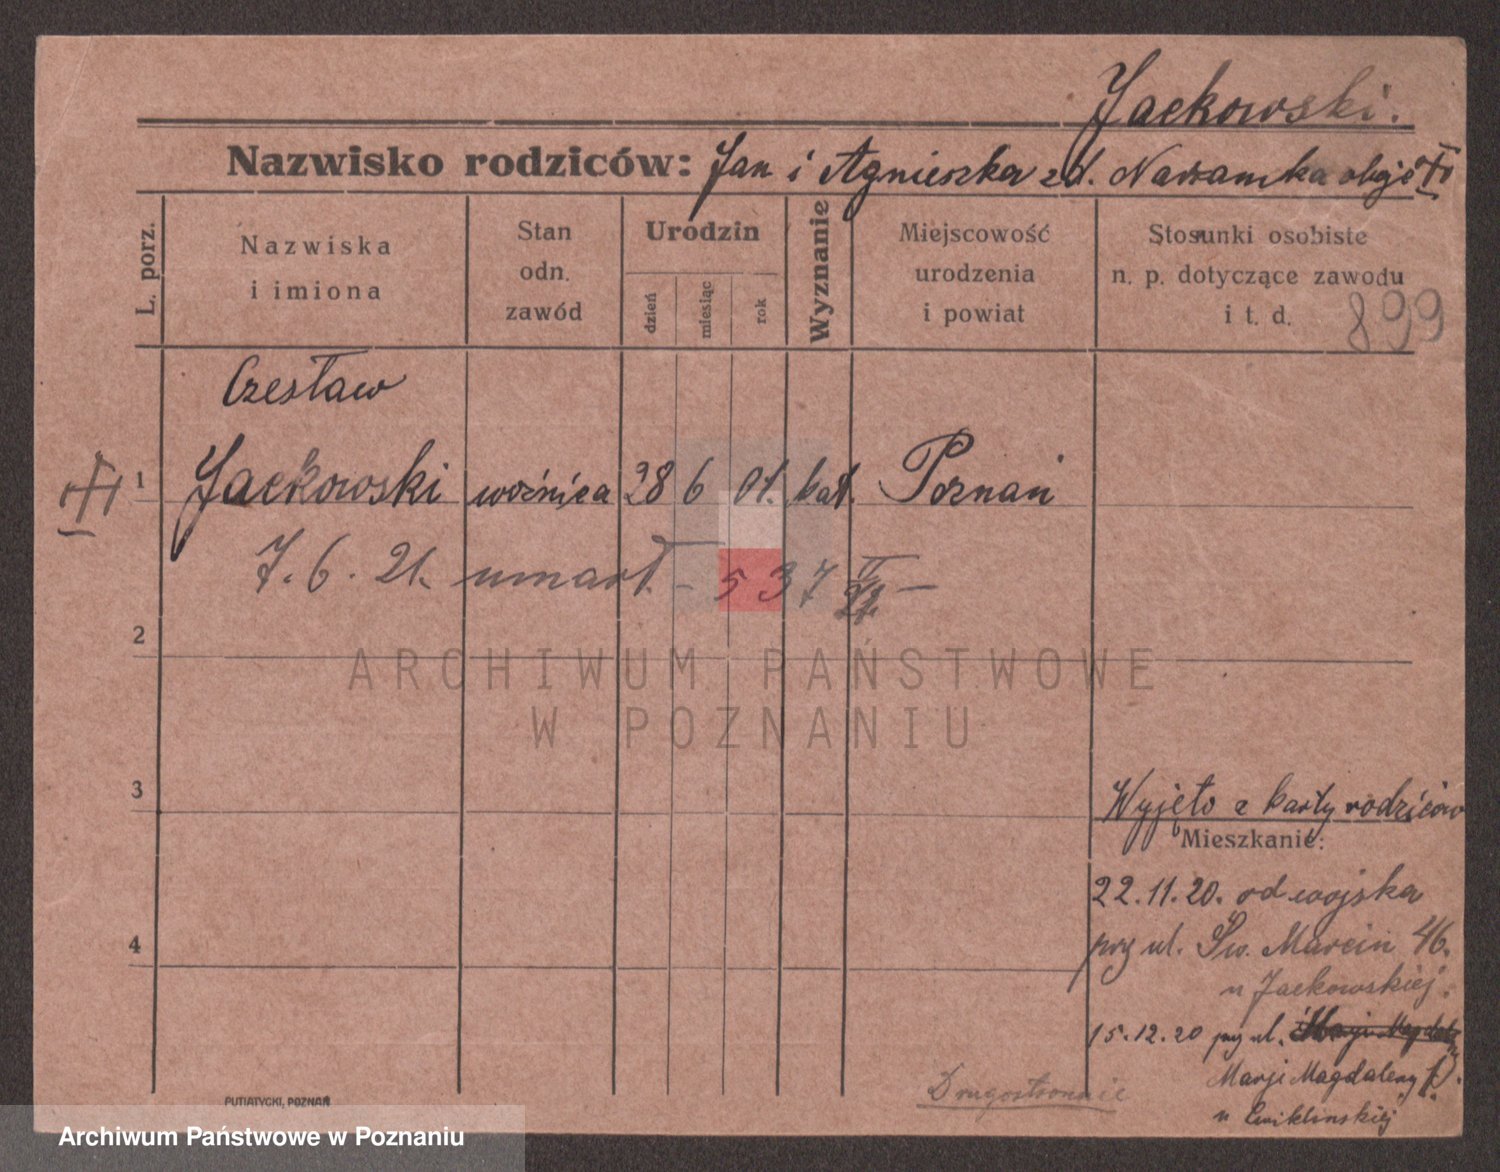 Jackowski.
Nazwisko rodziców: Jan i Agnieszka zd. Naramska oboje
L. porz.
Nazwiska i imiona
Stan odn. zawód
Urodzin
dzień
miesiąc
rok
Wyznanie
Miejscowość urodzenia i powiat
Stosunki osobiste n. p. dotyczące zawodu i t. d.
899
Czesław
1 Jackowski woźnica 28 6 01. kat. Poznań
7. 6. 21. umarł - 537
2
ARCHIWUM PAŃSTWOWE
W POZNANIU
3
Wyjęto z karty rodziców
Mieszkanie:
22.11.20. od wojska
4
przy ul. Św. Marcin 46.
u Jackowskiej.
15.12.20 przy ul.
Marji Magdaleny
u Ćwiklinskiej
Drugostronnie
PUTIATYCKI, POZNAŃ
Archiwum Państwowe w Poznaniu